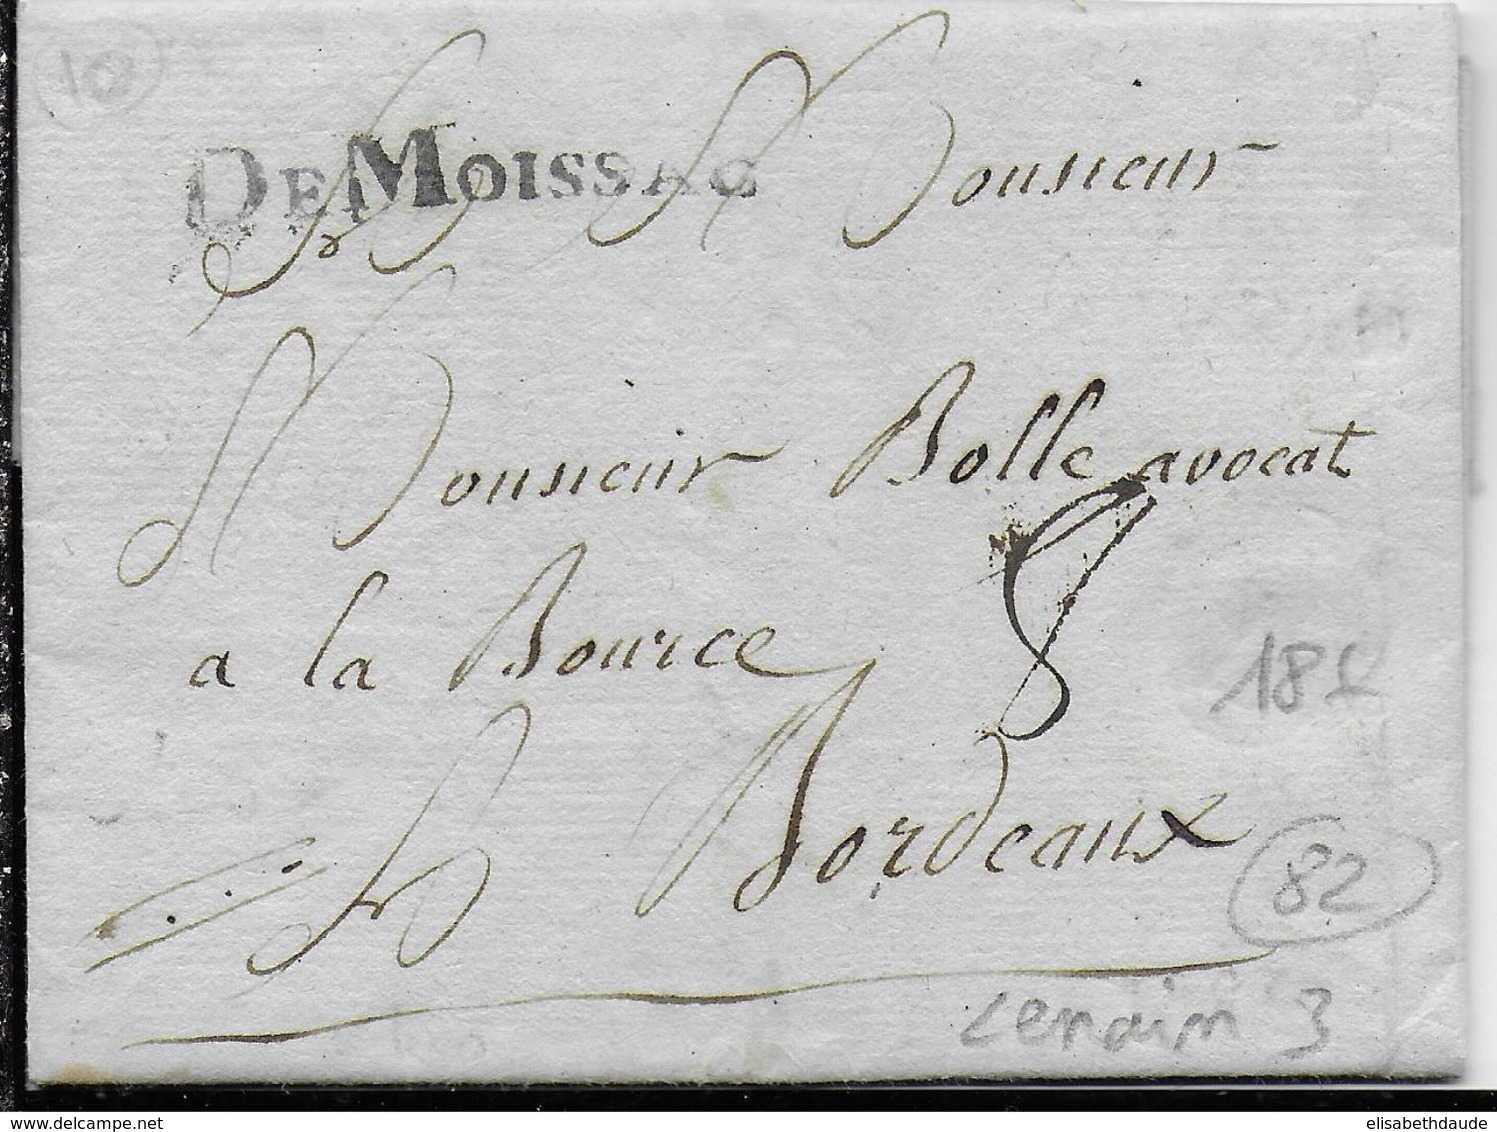 108
DE MOISSAC
A Monsieur
Monsieur Bolle avocat
a la Bource
8
181
A Bordeaux
82
Lenain 3
delcampe.net
elisabethdaude